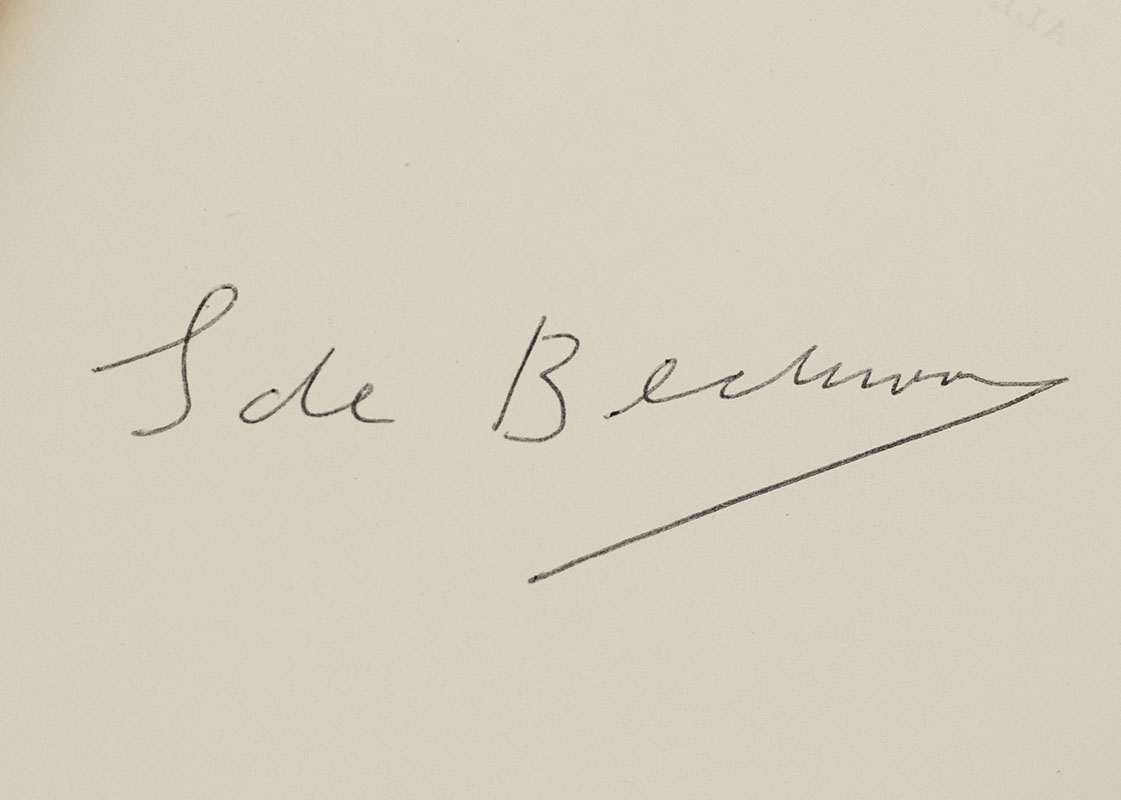 S de Beauvoir